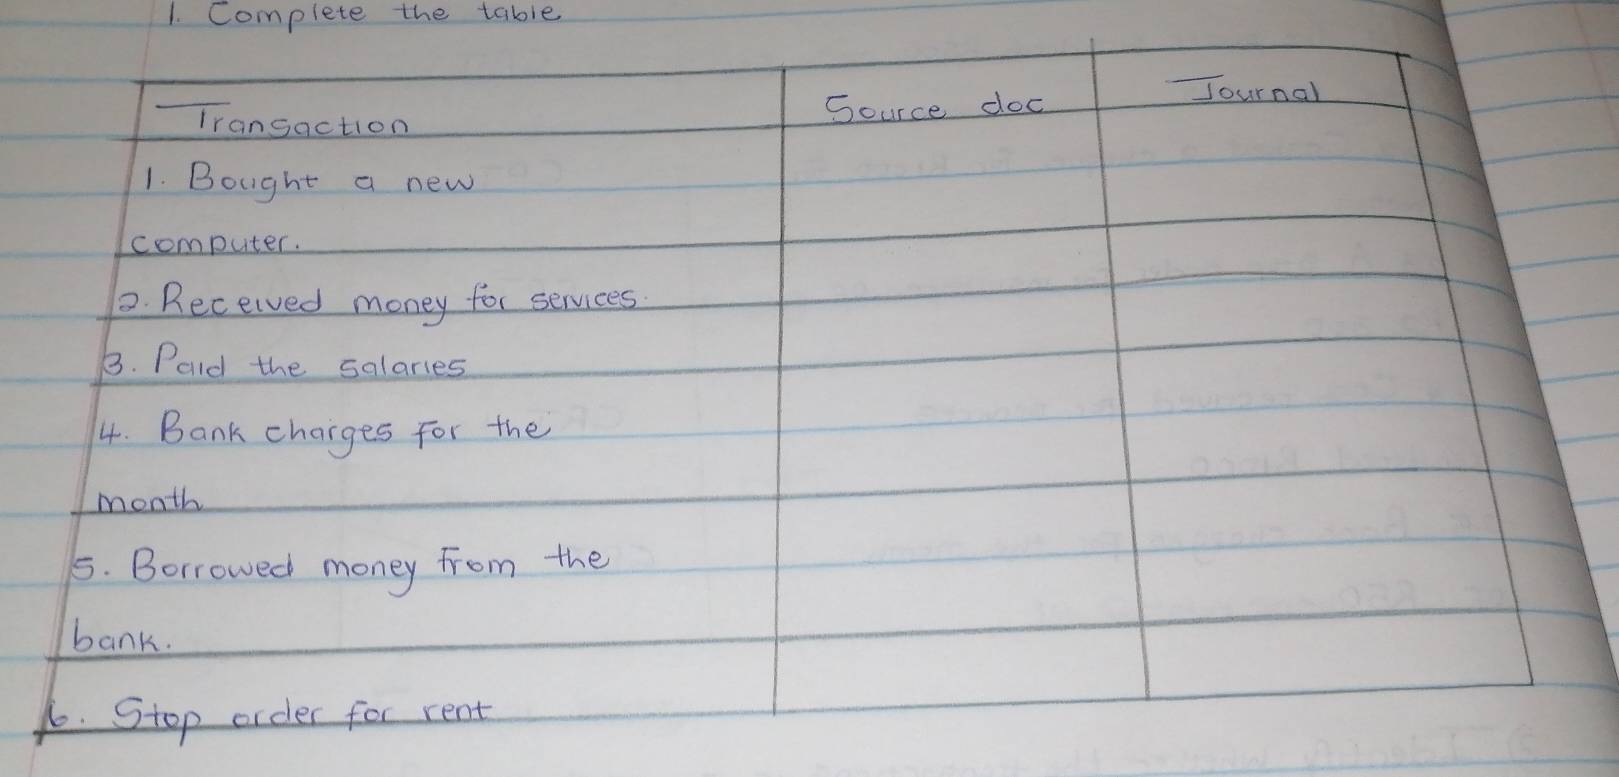 1. Complete the table
Transaction Source doc Journal
1. Bought a new
computer.
2. Received money for services.
3. Paid the salaries
4. Bank charges for the
month
5. Borrowed money from the
bank.
6. Stop order for rent